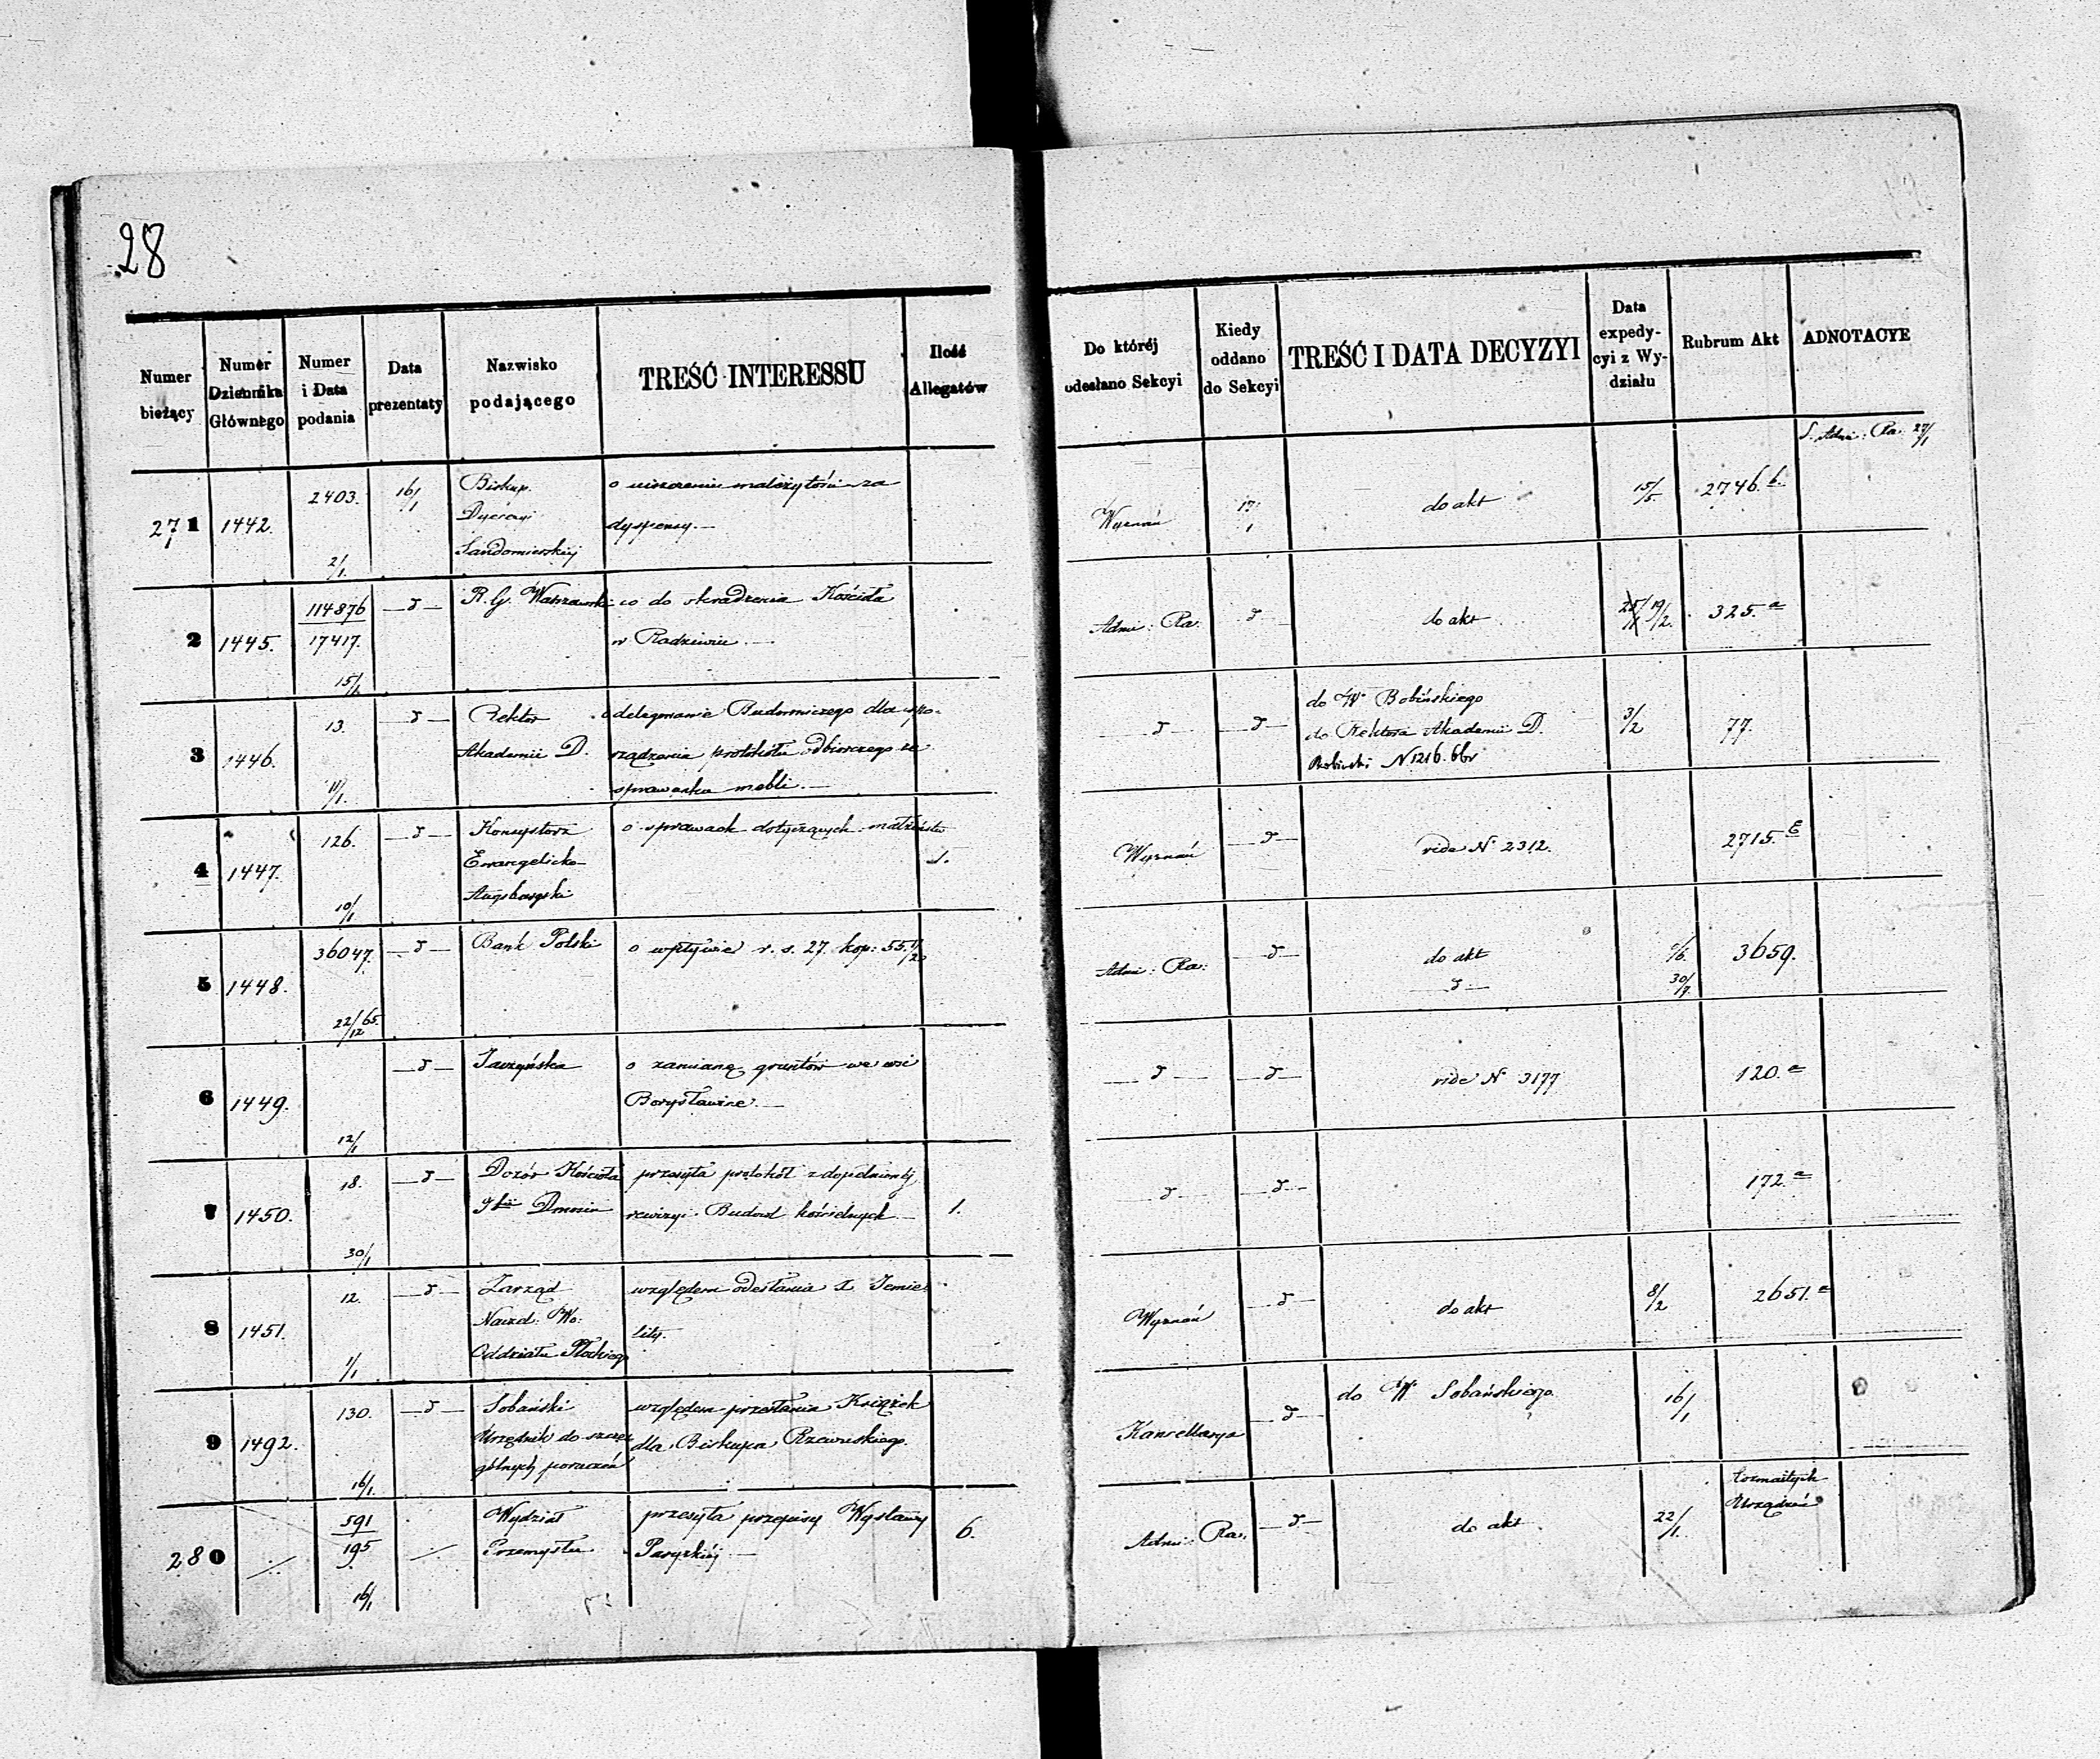 28
Numer bieżący | Numer Dziennika Głównego | Numer i Data podania | Data prezentaty | Nazwisko podającego | TREŚĆ INTERESSU | Ilość Allegatów | Do któréj odesłano Sekcyi | Kiedy oddano do Sekcyi | TREŚĆ I DATA DECYZYI | Data expedycyi z Wydziału | Rubrum Akt | ADNOTACYE
271 | 1442. | 2403. 2/1. | 16/1 | Biskup Dyecezyi Sandomierskiej | o uiszczenie należytości za dyspensy.— | | Wyznań | 17/1 | do akt | 15/5 | 2746.b. | S. Adm: Ra: 27/1
2 | 1445. | 114876 17417. 15/1 | —d— | R. G. Warszawski | co do skradzenia Kościoła w Radziwiu.— | | Adm: Ra: | d | do akt | 19/2. | 325.a
3 | 1446. | 13. 11/1. | —d— | Rektor Akademii D. | o delegowanie Budowniczego dla sporządzenia protokółu odbiorczego ze sprawunku mebli.— | | —d— | —d— | do W. Bobińskiego do Rektora Akademii D. N 1216. | 3/2 | 77.
4 | 1447. | 126. 10/1 | —d— | Konsystorz Ewangelicko-Augsburgski | o sprawach dotyczących małżeństw | 1. | Wyznań | —d— | vide N. 2312. | | 2715.E
5 | 1448. | 36047. 22/12 65. | —d— | Bank Polski | o wpływie r. s. 27. kop: 55.1/2 | | Adm: Ra: | —d— | do akt —d— | /6. 30/7. | 3659.
6 | 1449. | 12/1 | —d— | | o zamianę gruntów we wsi | | —d— | —d— | vide N. 3177 | | 120.a
7 | 1450. | 18. 30/1 | —d— | Dozór Kościoła | przesyła protokół z dopełnionéj rewizyi Budowl kościelnych— | 1. | —d— | —d— | | | 172.a
8 | 1451. | 12. 1/1 | —d— | Zarząd Naczel: Wo: Oddziału Płockiego | względem odesłania X Jemielity. | | Wyznań | —d— | do akt | 8/2 | 2651.a
9 | 1492. | 130. 16/1. | —d— | Sobański Urzędnik do szczególnych poruczeń | względem przesłania Książek dla Biskupa Rzewuskiego. | | Kancellarya | —d— | do W. Sobańskiego. | 16/1
280 | | 591 195 16/1 | | Wydział Przemysłu | przesyła przepisy Wystawy Paryzkiéj.— | 6. | Adm: Ra: | —d— | do akt. | 22/1. | Rozmaitych Urządzeń